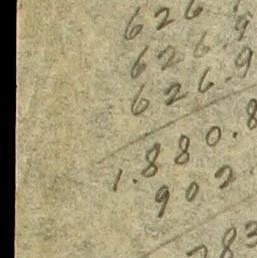 626.9
626.9
626.9
1.880.8
902.
783